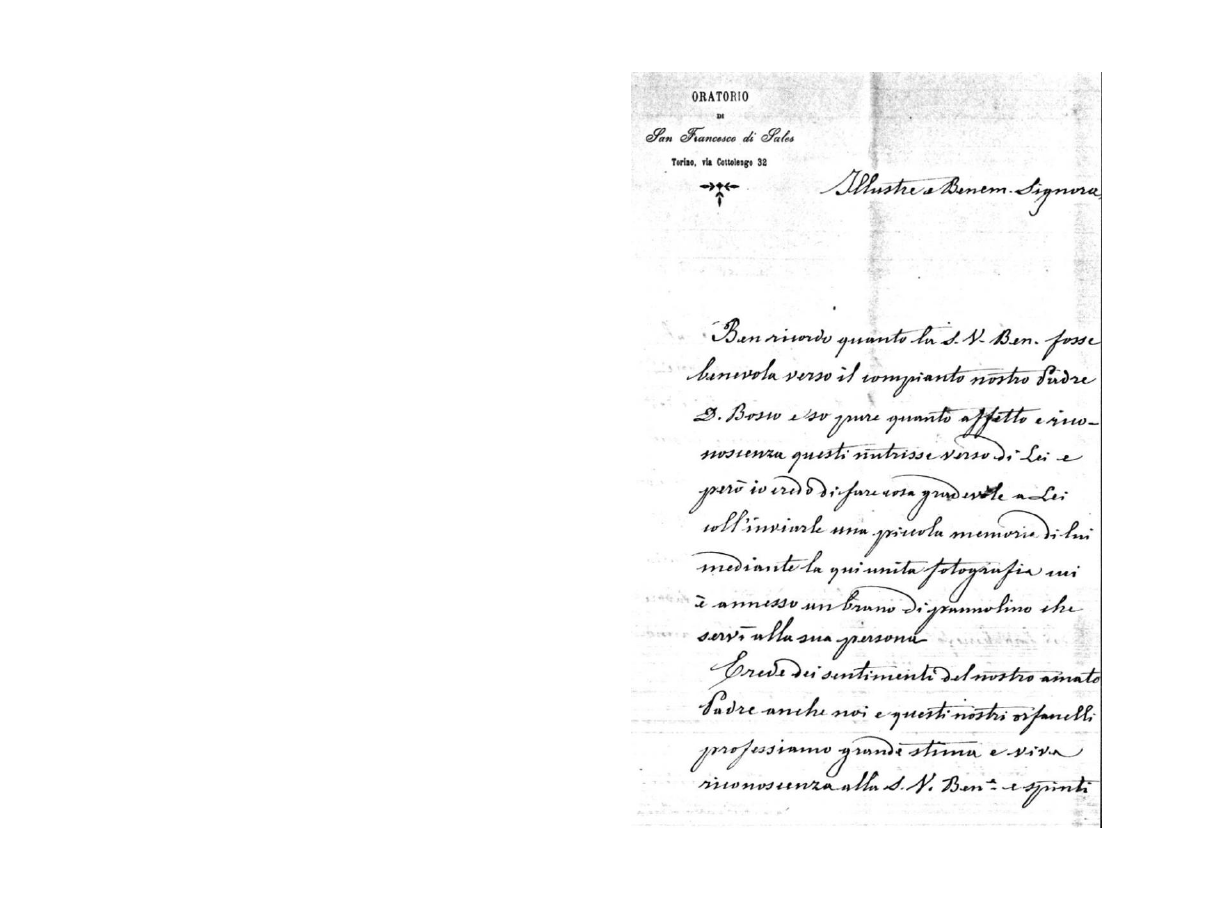 ORATORIO
DI
San Francesco di Sales
Torino, via Cottolengo 32
Illustre e Benem. Signora,
Ben ricordo quanto la S. V. Ben. fosse
benevola verso il compianto nostro Padre
D. Bosco e so pure quanto affetto e rico-
noscenza questi nutrisse verso di Lei e
però io credo di fare cosa gradevole a Lei
coll'inviarle una piccola memoria di lui
mediante la qui unita fotografia cui
è annesso un brano di pannolino che
servì alla sua persona
Erede dei sentimenti del nostro amato
Padre anche noi e questi nostri orfanelli
professiamo grande stima e viva
riconoscenza alla S. V. Ben.ª e spinti